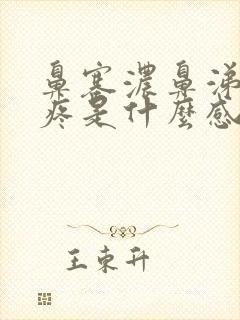 鼻塞濃鼻涕
疼是什麼感
王東升